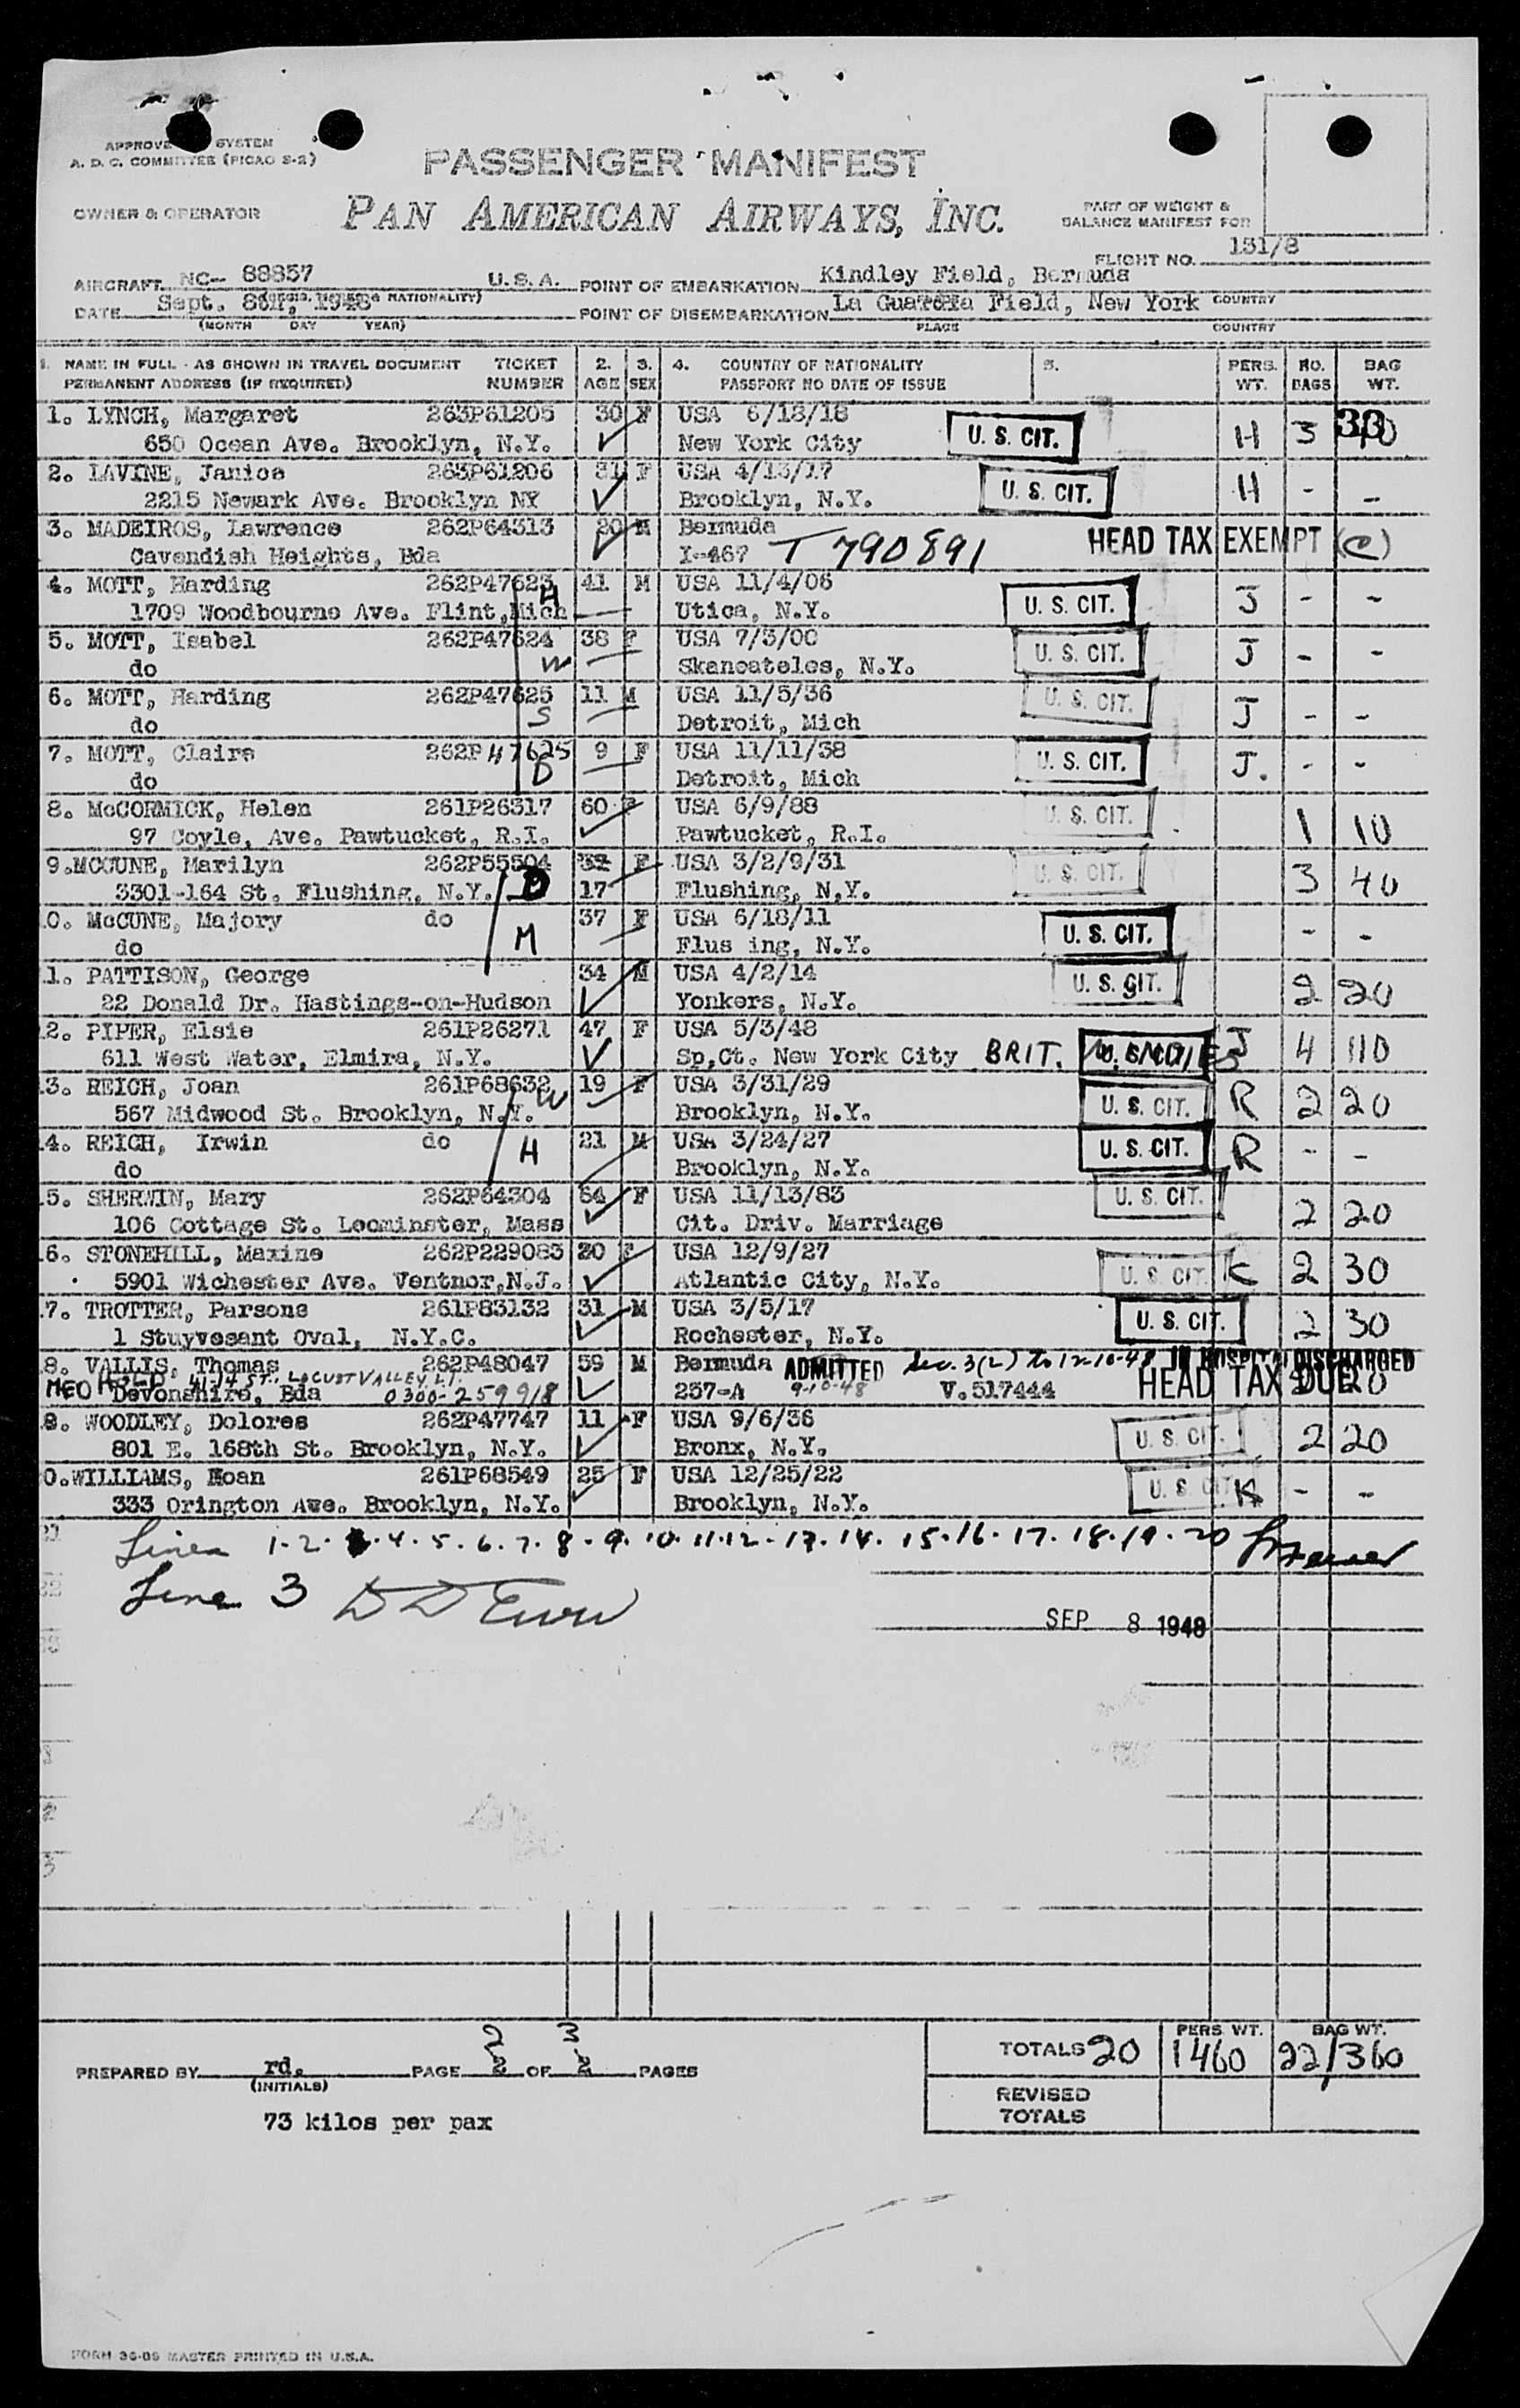 APPROVE SYSTEM
A. D. C. COMMITTEE (PICAO S-2)
PASSENGER MANIFEST
OWNER & OPERATOR
PAN AMERICAN AIRWAYS, INC.
PART OF WEIGHT &
BALANCE MANIFEST FOR
FLIGHT NO. 131/8
AIRCRAFT NC- 88857 U.S.A. POINT OF EMBARKATION Kindley Field, Bermuda
NATIONALITY) COUNTRY
DATE Sept. 8th, 1948 POINT OF DISEMBARKATION La Guardia Field, New York
(MONTH DAY YEAR) PLACE COUNTRY
1. NAME IN FULL - AS SHOWN IN TRAVEL DOCUMENT TICKET 2. 3. 4. COUNTRY OF NATIONALITY 5. PERS. NO. BAG
PERMANENT ADDRESS (IF REQUIRED) NUMBER AGE SEX PASSPORT NO DATE OF ISSUE WT. BAGS WT.
1. LYNCH, Margaret 263P61205 30 F USA 6/18/18
650 Ocean Ave. Brooklyn, N.Y. New York City U. S. CIT. H 3
2. LAVINE, Janice 263P61206 31 F USA 4/13/17
2215 Newark Ave. Brooklyn NY Brooklyn, N.Y. U. S. CIT. H - -
3. MADEIROS, Lawrence 262P64313 20 M Bermuda HEAD TAX EXEMPT (C)
Cavendish Heights, Bda I-467 T 790891
4. MOTT, Harding 262P47623 41 M USA 11/4/06
1709 Woodbourne Ave. Flint, Mich H Utica, N.Y. U. S. CIT. J - -
5. MOTT, Isabel 262P47624 38 F USA 7/3/00
do W Skaneateles, N.Y. U. S. CIT. J - -
6. MOTT, Harding 262P47625 11 M USA 11/5/36
do S Detroit, Mich U. S. CIT. J - -
7. MOTT, Claire 262P47625 9 F USA 11/11/38
do D Detroit, Mich U. S. CIT. J. - -
8. McCORMICK, Helen 261P26317 60 F USA 6/9/88
97 Coyle, Ave. Pawtucket, R.I. Pawtucket, R.I. U. S. CIT. 1 10
9.MCCUNE, Marilyn 262P55504 F USA 3/2/9/31
3301-164 St. Flushing, N.Y. D 17 Flushing, N.Y. U. S. CIT. 3 40
0. McCUNE, Majory do 37 F USA 6/18/11
do M Flus ing, N.Y. U. S. CIT. - -
1. PATTISON, George 34 M USA 4/2/14
22 Donald Dr. Hastings-on-Hudson Yonkers, N.Y. U. S. CIT. 2 20
2. PIPER, Elsie 261P26271 47 F USA 5/3/48
611 West Water, Elmira, N.Y. Sp.Ct. New York City BRIT. J 4 110
3. REICH, Joan 261P68632 19 F USA 3/31/29
567 Midwood St. Brooklyn, N.Y. W Brooklyn, N.Y. U. S. CIT. R 2 20
4. REICH, Irwin do 21 M USA 3/24/27
do H Brooklyn, N.Y. U. S. CIT. R - -
5. SHERWIN, Mary 262P64304 64 F USA 11/13/83
106 Cottage St. Leominster, Mass Cit. Driv. Marriage U. S. CIT. 2 20
6. STONEHILL, Maxine 262P229083 20 F USA 12/9/27
5901 Wichester Ave. Ventnor,N.J. Atlantic City, N.Y. U. S. CIT. K 2 30
7. TROTTER, Parsons 261P83132 31 M USA 3/5/17
1 Stuyvesant Oval, N.Y.C. Rochester, N.Y. U. S. CIT. 2 30
8. VALLIS, Thomas 262P48047 59 M Bermuda ADMITTED Sec. 3(2) to 12-10-48 IN HOSPITAL DISCHARGED
MED HOLD ST., LOCUST VALLEY, L.I.
Devonshire, Bda 0300-259918 257-A 9-10-48 V.517444 HEAD TAX DUE
9. WOODLEY, Dolores 262P47747 11 F USA 9/6/36
801 E. 168th St. Brooklyn, N.Y. Bronx, N.Y. U. S. CIT. 2 20
0.WILLIAMS, Hoan 261P68549 25 F USA 12/25/22
333 Orington Ave. Brooklyn, N.Y. Brooklyn, N.Y. U. S. CIT. K - -
Lines 1-2-4-5-6-7-8-9-10-11-12-13-14-15-16-17-18-19-20
Line 3
SEP 8 1948
TOTALS 20 PERS. WT. 1460 BAG WT. 22/360
PREPARED BY rd. PAGE 2 2 OF 3 2 PAGES
(INITIALS)
REVISED
TOTALS
73 kilos per pax
FORM 36-06 MASTER PRINTED IN U.S.A.